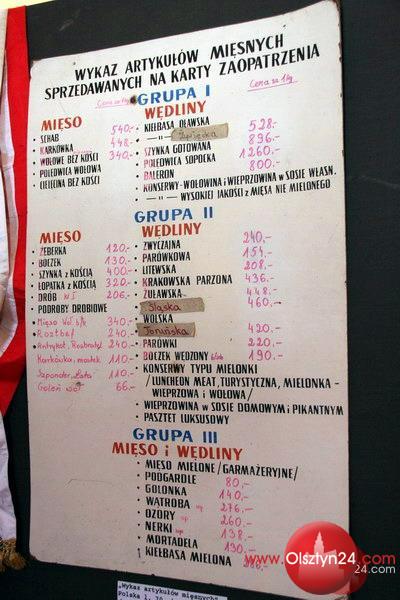 WYKAZ ARTYKUŁÓW MIĘSNYCH
SPRZEDAWANYCH NA KARTY ZAOPATRZENIA
Cena za 1kg
Cena za 1kg
GRUPA I
MIĘSO
SCHAB 540,-
KARKÓWKA 448,-
WOŁOWE BEZ KOŚCI 340,-
POLĘDWICA WOŁOWA
CIELĘCINA BEZ KOŚCI
WĘDLINY
KIEŁBASA OŁAWSKA 528,-
—"—
SZYNKA GOTOWANA 896,-
POLĘDWICA SOPOCKA 1260,-
BALERON 800,-
KONSERWY-WOŁOWINA i WIEPRZOWINA W SOSIE WŁASN.
—"— WYSOKIEJ JAKOŚCI z MIĘSA NIE MIELONEGO
GRUPA II
MIĘSO
ŻEBERKA 120,-
BOCZEK 130,-
SZYNKA z KOŚCIĄ 400,-
ŁOPATKA z KOŚCIĄ 320,-
DRÓB kl I 206,-
PODROBY DROBIOWE
Mięso Woł. b/k 340,-
Rostbef 240,-
Antrykot, Rozbratel 240,-
Karkówka, mostek 110,-
Szponder, Łata 110,-
Goleń woł 66,-
WĘDLINY
ZWYCZAJNA 240,-
PARÓWKOWA 154,-
LITEWSKA 208,-
KRAKOWSKA PARZONA 436,-
ŻUŁAWSKA 448,-
Śląska 460,-
WOLSKA
Toruńska 420,-
PARÓWKI 220,-
BOCZEK WĘDZONY b/żeb 190,-
KONSERWY TYPU MIELONKI
/LUNCHEON MEAT, TURYSTYCZNA, MIELONKA-
WIEPRZOWA i WOŁOWA/
WIEPRZOWINA W SOSIE DOMOWYM i PIKANTNYM
PASZTET LUKSUSOWY
GRUPA III
MIĘSO i WĘDLINY
MIĘSO MIELONE /GARMAŻERYJNE/
PODGARDLE 80,-
GOLONKA 140,-
WĄTROBA wp 276,-
OZORY wp 260,-
NERKI wp 138,-
MORTADELA 130,-
KIEŁBASA MIELONA
www.Olsztyn24.com
24.com
"Wykaz artykułów mięsnych"